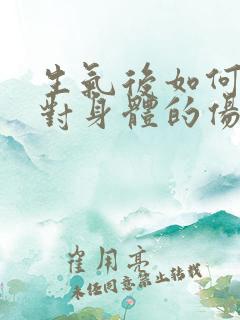 生氣後如何
對身體的傷
崔用亮
未經同意禁止轉載